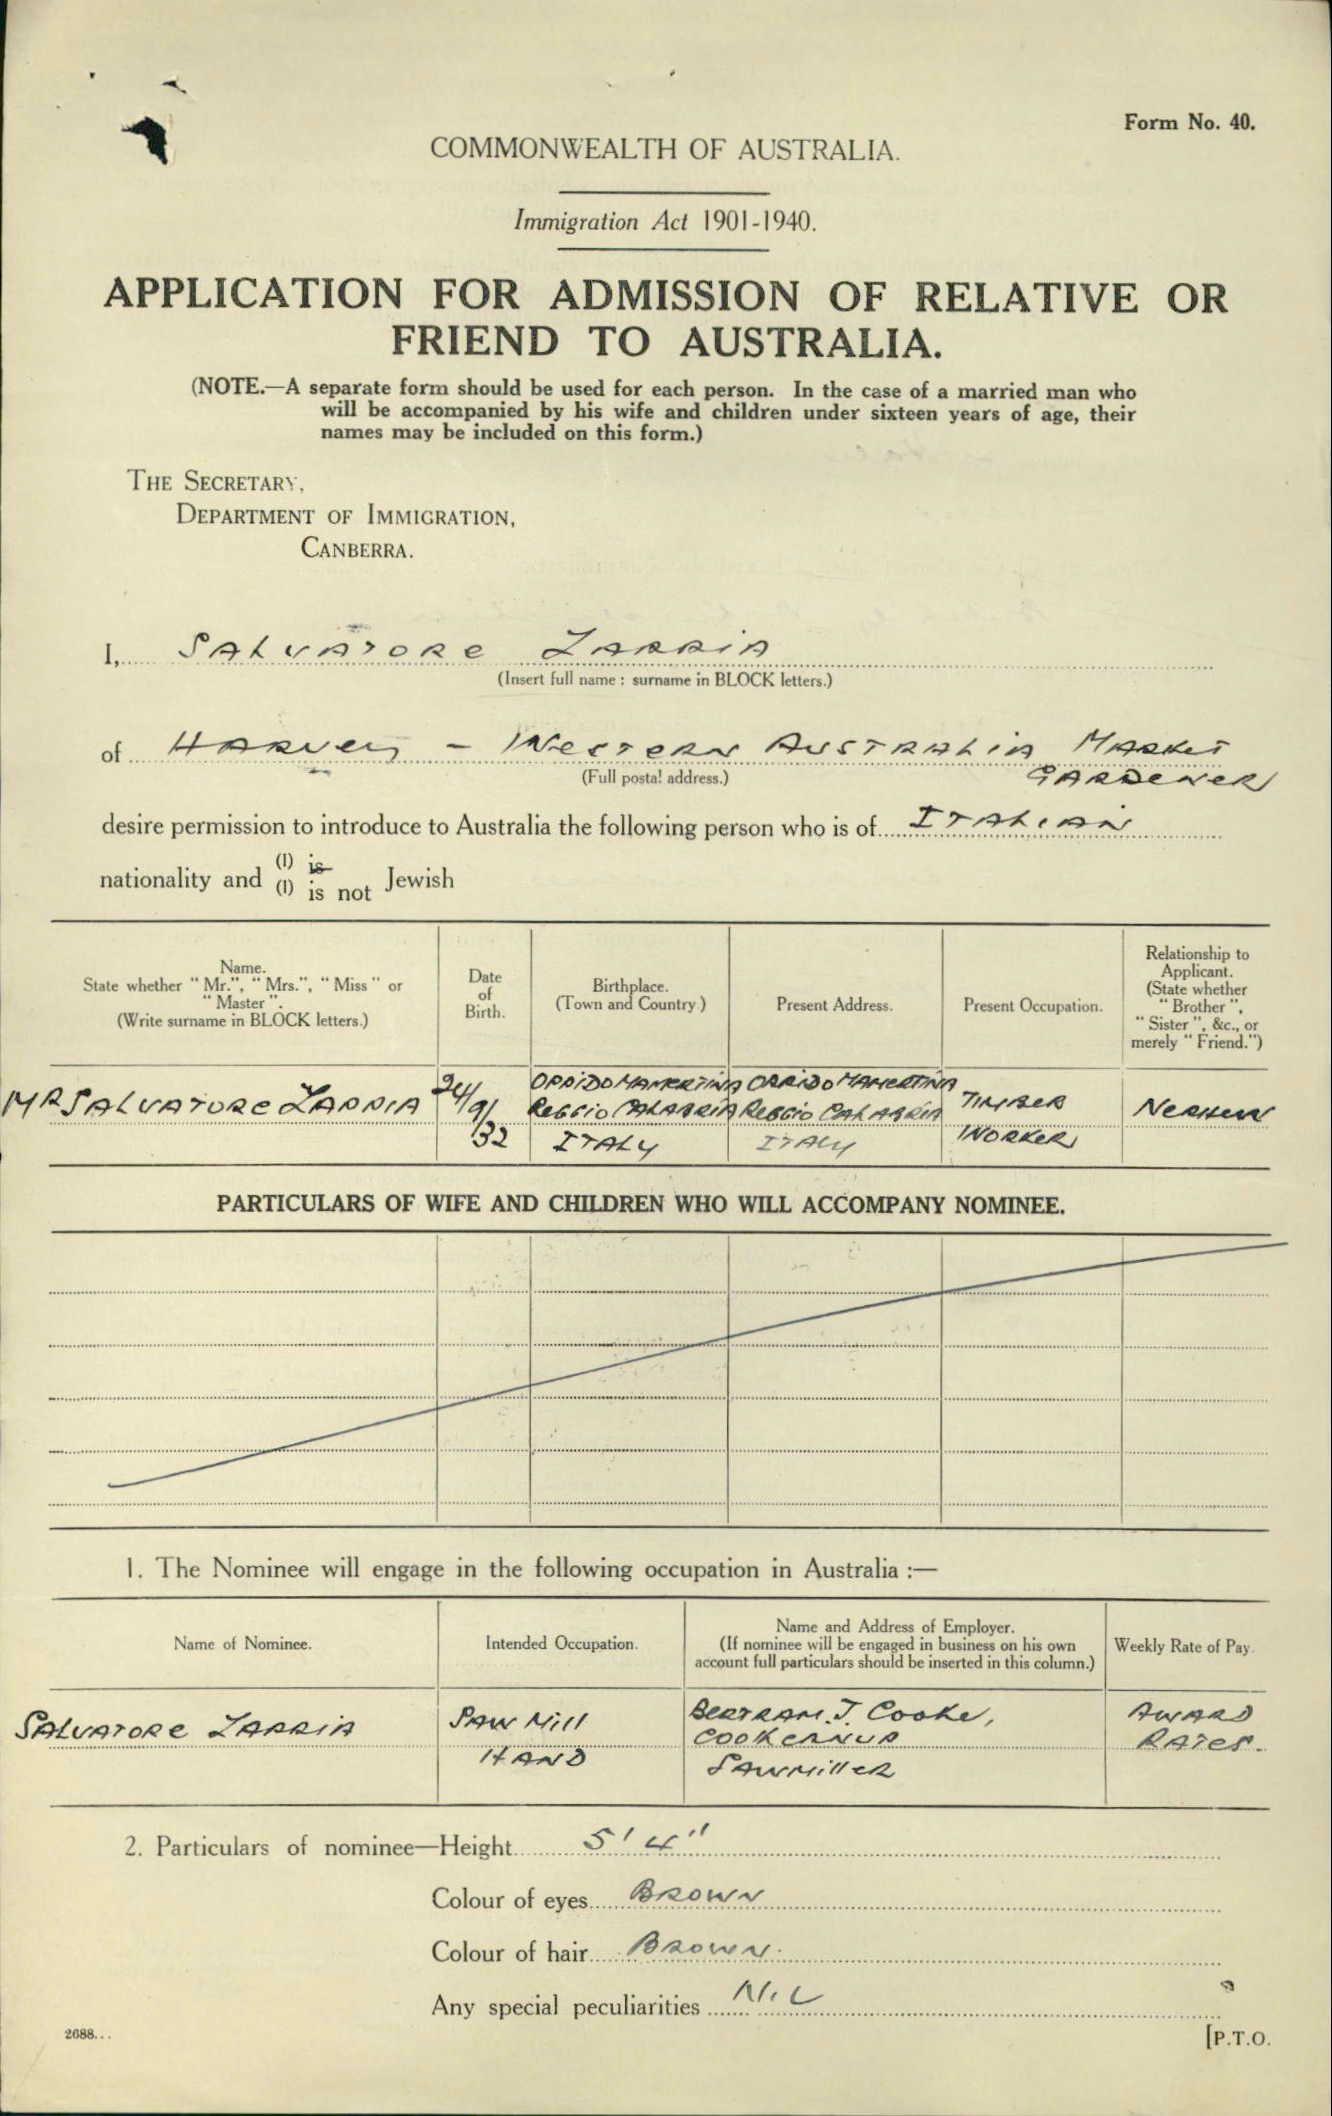 Form No. 40.
COMMONWEALTH OF AUSTRALIA.
Immigration Act 1901-1940.
APPLICATION FOR ADMISSION OF RELATIVE OR
FRIEND TO AUSTRALIA.
(NOTE.—A separate form should be used for each person. In the case of a married man who
will be accompanied by his wife and children under sixteen years of age, their
names may be included on this form.)
THE SECRETARY,
DEPARTMENT OF IMMIGRATION,
CANBERRA.
I, SALVATORE ZAPPIA
(Insert full name : surname in BLOCK letters.)
of HARVEY - WESTERN AUSTRALIA MARKET
(Full postal address.) GARDENER
desire permission to introduce to Australia the following person who is of ITALIAN
nationality and (1) is
(1) is not Jewish
Name.
State whether "Mr.", "Mrs.", "Miss" or
"Master".
(Write surname in BLOCK letters.)
Date
of
Birth.
Birthplace.
(Town and Country.)
Present Address.
Present Occupation.
Relationship to
Applicant.
(State whether
"Brother",
"Sister", &c., or
merely "Friend.")
MR SALVATORE ZAPPIA
24/9/32
OPPIDO MAMERTINA
REGGIO CALABRIA
ITALY
OPPIDO MAMERTINA
REGGIO CALABRIA
ITALY
TIMBER
WORKER
NEPHEW
PARTICULARS OF WIFE AND CHILDREN WHO WILL ACCOMPANY NOMINEE.
1. The Nominee will engage in the following occupation in Australia :—
Name of Nominee.
Intended Occupation.
Name and Address of Employer.
(If nominee will be engaged in business on his own
account full particulars should be inserted in this column.)
Weekly Rate of Pay.
SALVATORE ZAPPIA
SAW Mill
HAND
BERTRAM. J. Cooke,
COOKERNUP
SAWMillER
AWARD
RATES.
2. Particulars of nominee—Height 5' 4"
Colour of eyes BROWN
Colour of hair BROWN.
Any special peculiarities NIL
2688...
[P.T.O.